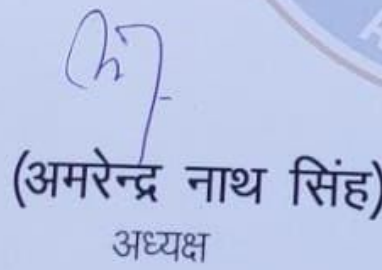 (अमरेन्द्र नाथ सिंह)
अध्यक्ष